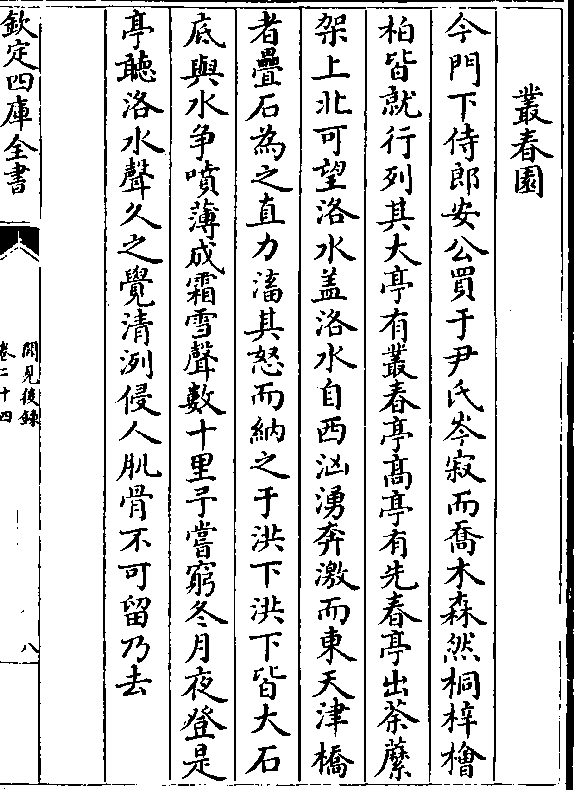 叢春園
今門下侍郎安公買于尹氏岑寂而喬木森然桐梓檜
柏皆就行列其大亭有叢春亭髙亭有先春亭出荼蘼
架上北可望洛水盖洛水自西汹湧奔激而東天津橋
者疊石為之直力滀其怒而納之于洪下洪下皆大石
底與水争噴薄成霜雪聲數十里予嘗窮冬月夜登是
亭聽洛水聲久之覺清洌侵人肌骨不可留乃去
欽定四庫全書
聞見後錄
卷二十四
八